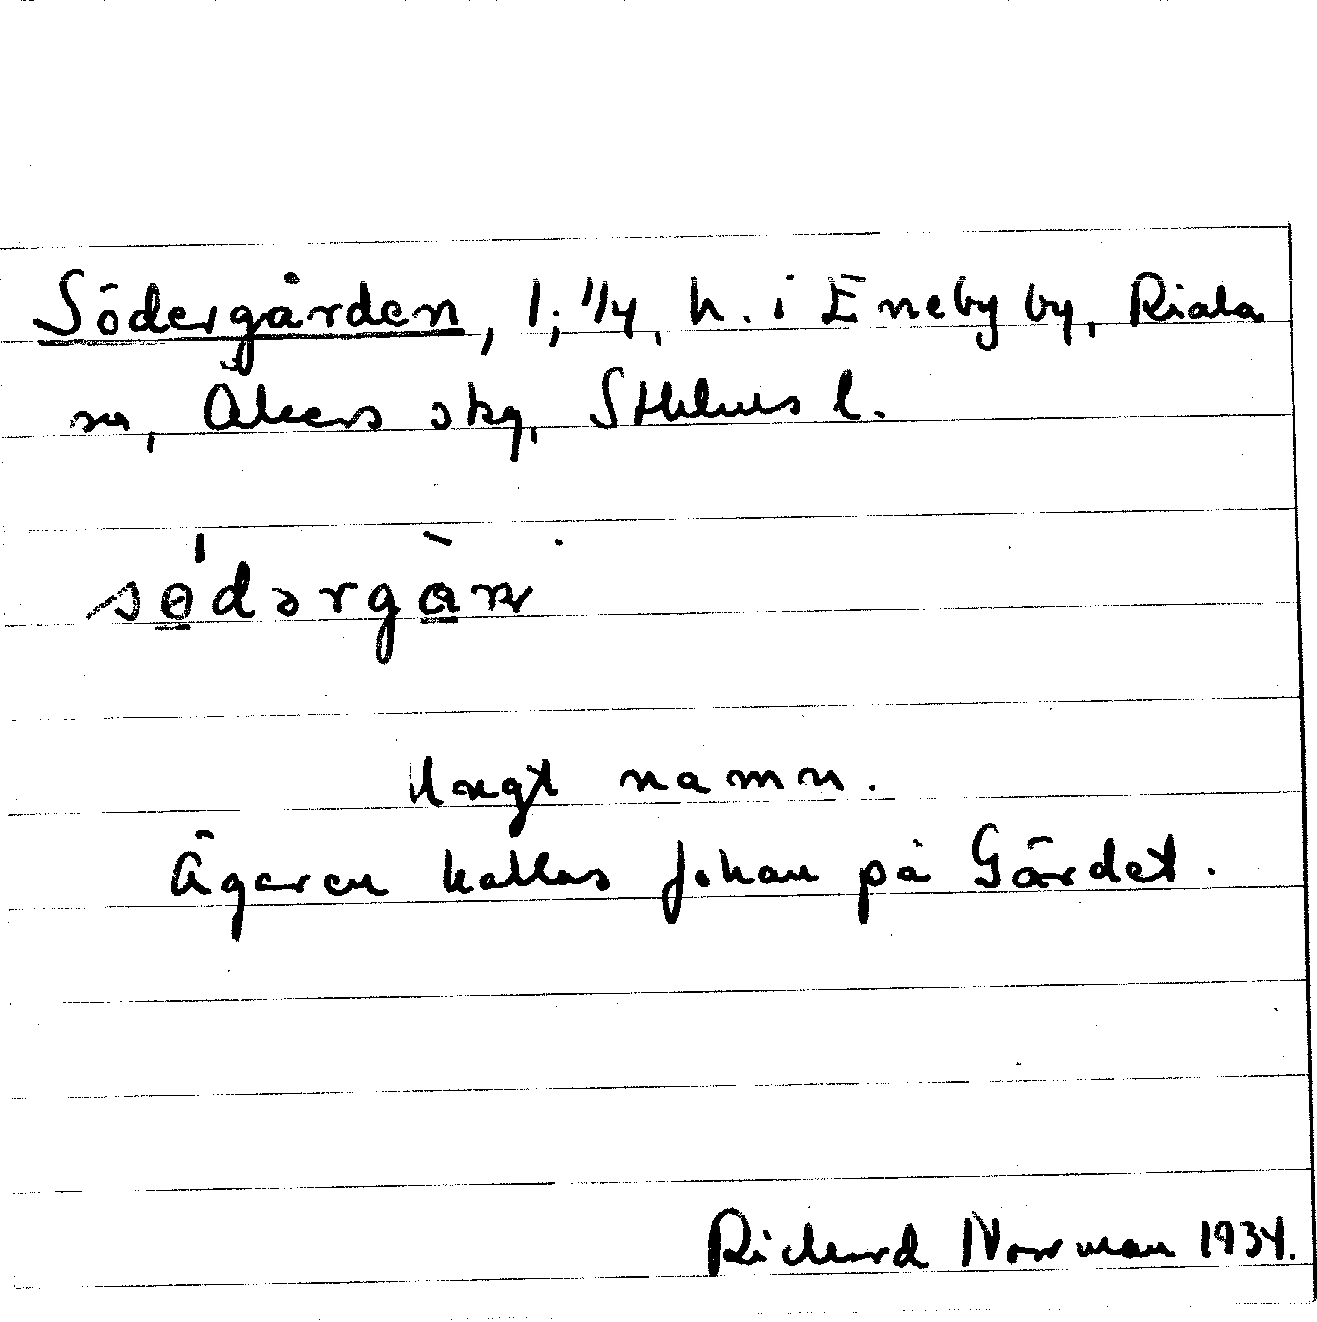 Södergården, 1; 1/4, h. i Eneby by, Riala
sn, Åkers skg, Sthlms l.
södərgàn
Ungt namn.
Ägaren kallas Johan på Gärdet.
Richard Norrman 1934.